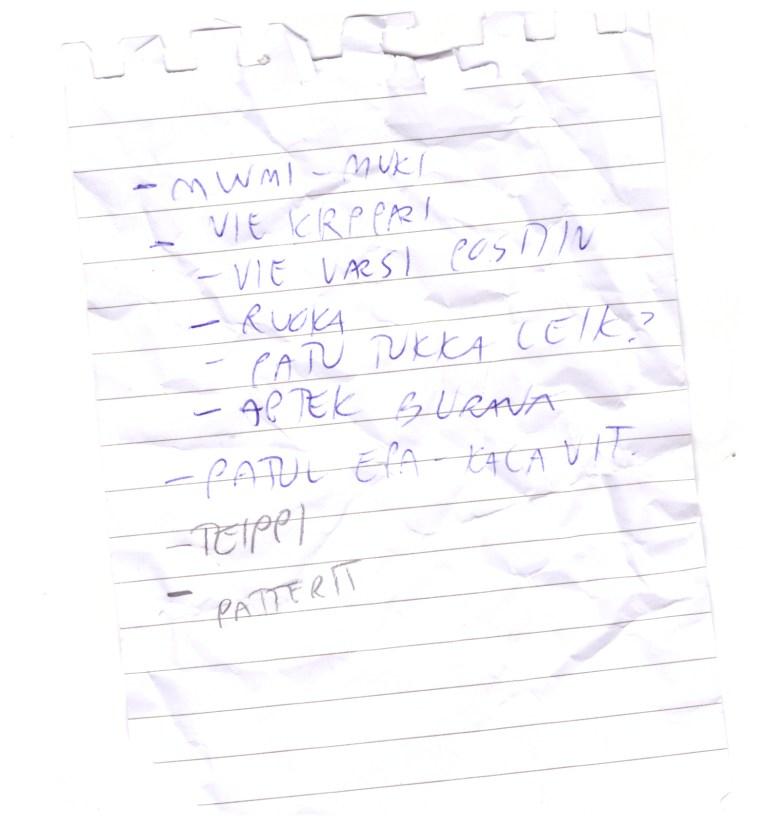 - MUUMI - MUKI
- VIE KIRPPARI
- VIE VARSI POSTIIN
- RUOKA
- PATU TUKKA LEIK.?
- APTEK BURANA
- PATUL EPA - KALA VIT.
- TEIPPI
- PATTERIT